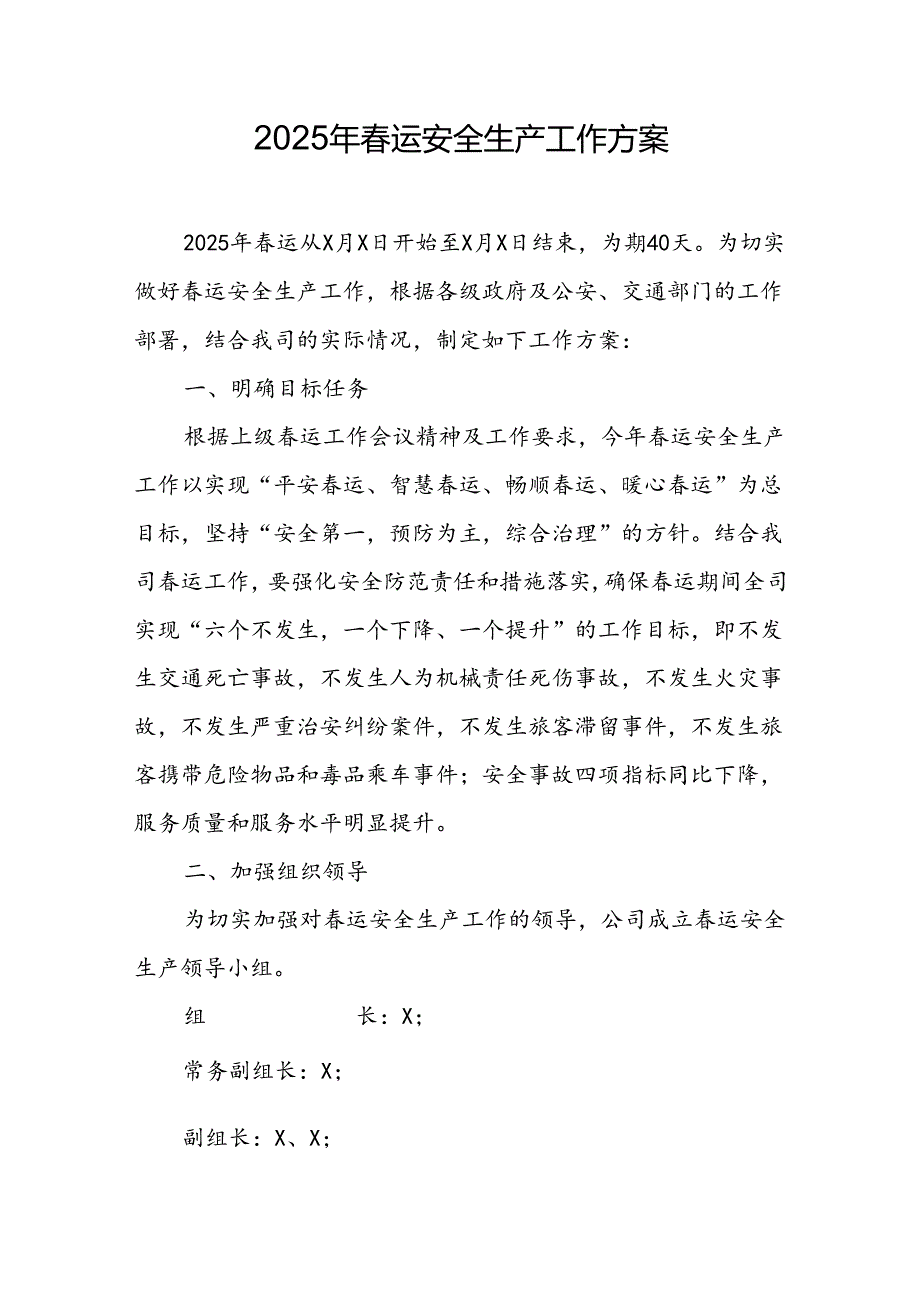 2025年春运安全生产工作方案
2025年春运从X月X日开始至X月X日结束，为期40天。为切实
做好春运安全生产工作，根据各级政府及公安、交通部门的工作
部署，结合我司的实际情况，制定如下工作方案：
一、明确目标任务
根据上级春运工作会议精神及工作要求，今年春运安全生产
工作以实现“平安春运、智慧春运、畅顺春运、暖心春运”为总
目标，坚持“安全第一，预防为主，综合治理”的方针。结合我
司春运工作，要强化安全防范责任和措施落实，确保春运期间全司
实现“六个不发生，一个下降、一个提升”的工作目标，即不发
生交通死亡事故，不发生人为机械责任死伤事故，不发生火灾事
故，不发生严重治安纠纷案件，不发生旅客滞留事件，不发生旅
客携带危险物品和毒品乘车事件；安全事故四项指标同比下降，
服务质量和服务水平明显提升。
二、加强组织领导
为切实加强对春运安全生产工作的领导，公司成立春运安全
生产领导小组。
组 长：X；
常务副组长：X；
副组长：X、X；